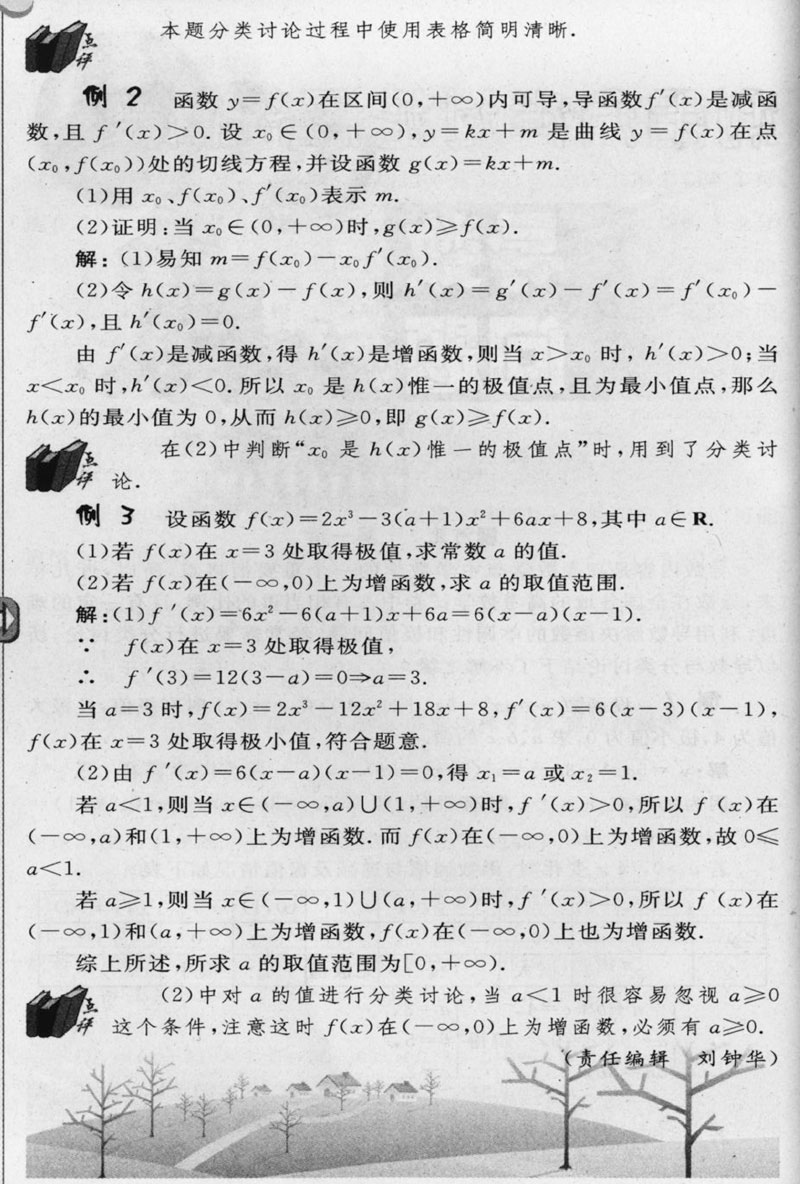 本题分类讨论过程中使用表格简明清晰.
点评
例 2 函数 y=f(x)在区间(0,+∞)内可导,导函数f′(x)是减函
数,且 f′(x)>0. 设 x₀∈(0,+∞),y=kx+m 是曲线 y=f(x)在点
(x₀,f(x₀))处的切线方程,并设函数 g(x)=kx+m.
(1)用 x₀、f(x₀)、f′(x₀)表示 m.
(2)证明:当 x₀∈(0,+∞)时,g(x)≥f(x).
解: (1)易知 m=f(x₀)-x₀f′(x₀).
(2)令 h(x)=g(x)-f(x),则 h′(x)=g′(x)-f′(x)=f′(x₀)-
f′(x),且 h′(x₀)=0.
由 f′(x)是减函数,得 h′(x)是增函数,则当 x>x₀ 时, h′(x)>0;当
x<x₀ 时,h′(x)<0. 所以 x₀ 是 h(x)惟一的极值点,且为最小值点,那么
h(x)的最小值为 0,从而 h(x)≥0,即 g(x)≥f(x).
点评 在(2)中判断“x₀ 是 h(x)惟一的极值点”时,用到了分类讨
论.
例 3 设函数 f(x)=2x³-3(a+1)x²+6ax+8,其中 a∈R.
(1)若 f(x)在 x=3 处取得极值,求常数 a 的值.
(2)若 f(x)在(-∞,0)上为增函数,求 a 的取值范围.
解:(1)f′(x)=6x²-6(a+1)x+6a=6(x-a)(x-1).
∵ f(x)在 x=3 处取得极值,
∴ f′(3)=12(3-a)=0⇒a=3.
当 a=3 时,f(x)=2x³-12x²+18x+8,f′(x)=6(x-3)(x-1),
f(x)在 x=3 处取得极小值,符合题意.
(2)由 f′(x)=6(x-a)(x-1)=0,得 x₁=a 或 x₂=1.
若 a<1,则当 x∈(-∞,a)∪(1,+∞)时,f′(x)>0,所以 f(x)在
(-∞,a)和(1,+∞)上为增函数. 而 f(x)在(-∞,0)上为增函数,故 0≤
a<1.
若 a≥1,则当 x∈(-∞,1)∪(a,+∞)时,f′(x)>0,所以 f(x)在
(-∞,1)和(a,+∞)上为增函数,f(x)在(-∞,0)上也为增函数.
综上所述,所求 a 的取值范围为[0,+∞).
点评 (2)中对 a 的值进行分类讨论,当 a<1 时很容易忽视 a≥0
这个条件,注意这时 f(x)在(-∞,0)上为增函数,必须有 a≥0.
(责任编辑 刘钟华)